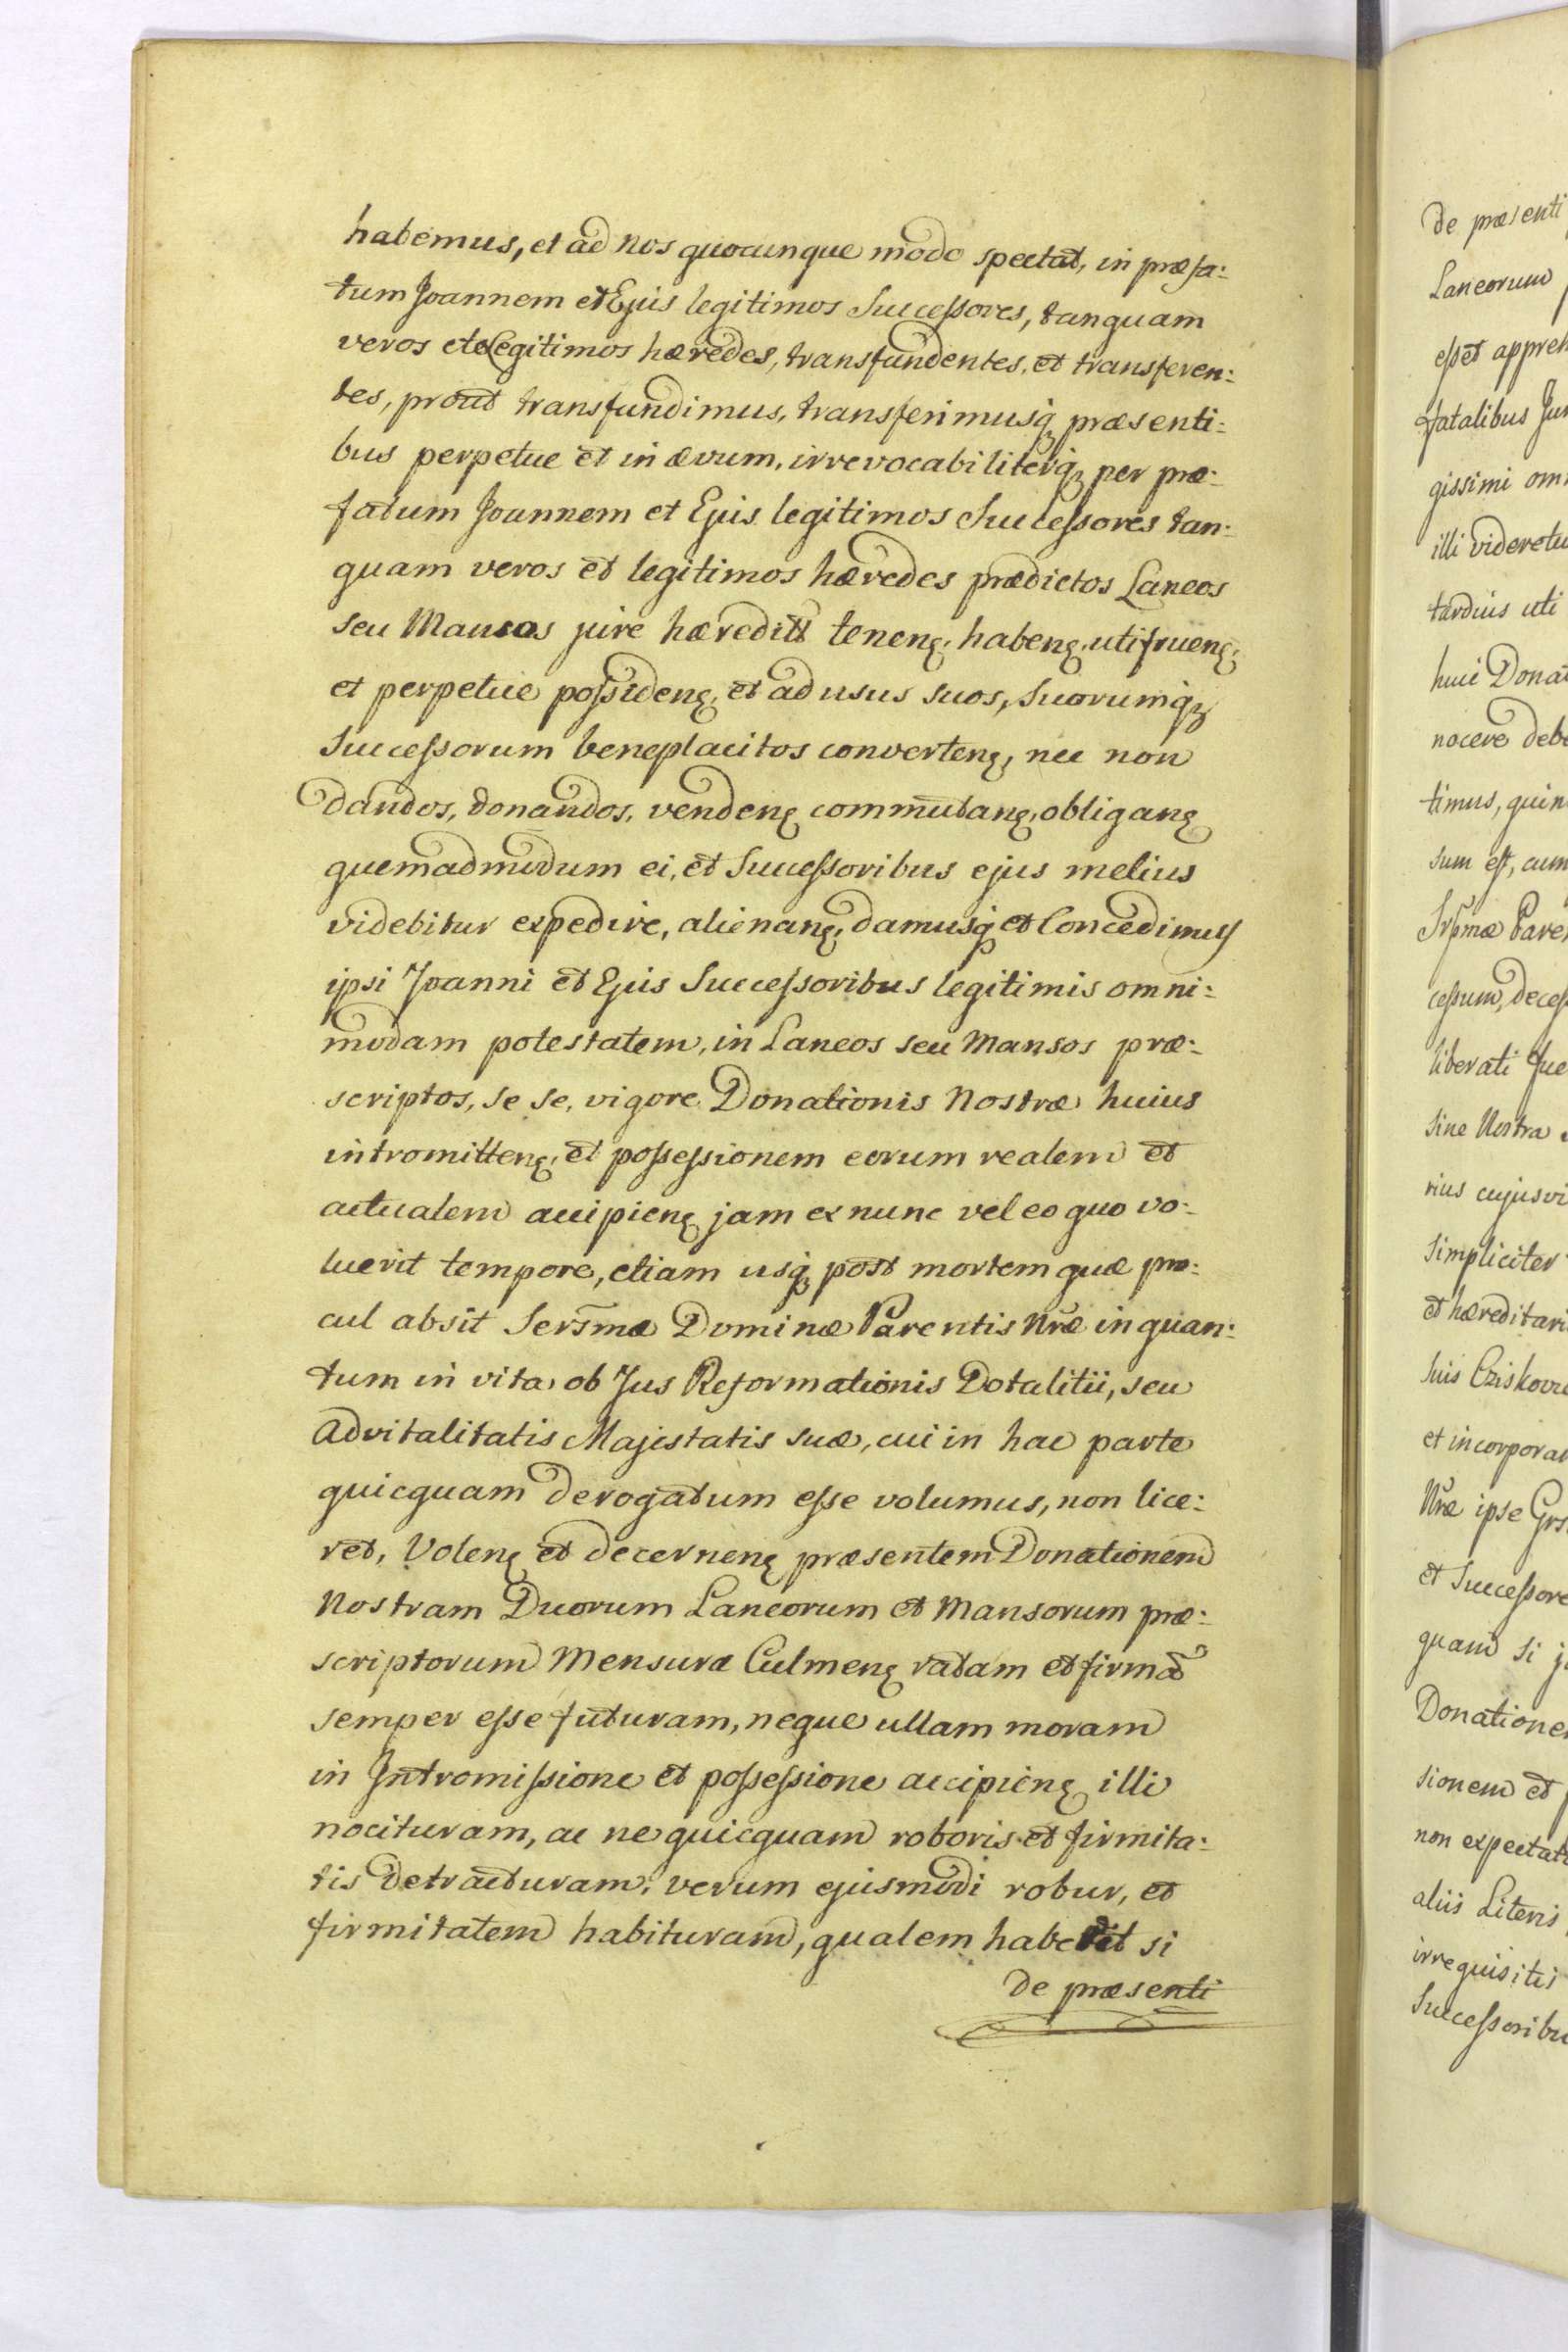 habemus, et ad nos quocunque modo spectat, in præfa:
tum Joannem et Ejus legitimos Successores, tanquam
veros et legitimos hæredes, transfundentes, et transferen:
tes, prout transfundimus, transferimusq; præsenti:
bus perpetue et in ævum, irrevocabiliterq; per præ:
fatum Joannem et Ejus legitimos Successores tan:
quam veros et legitimos hæredes prædictos Laneos
seu Mansos jure heredit: teneñ: habeñ: utifrueñ:
et perpetue possideñ: et ad usus suos, suorumq;
Successorum beneplacitos converteñ: nec non
dandos, donandos, vendeñ: commutañ: obligañ:
quemadmodum ei, et Successoribus ejus melius
videbitur expedire, alienañ: damusq; et Concedimus
ipsi Joanni et Ejus Successoribus legitimis omni:
modam potestatem, in Laneos seu Mansos præ:
scriptos, se se, vigore Donationis Nostræ huius
intromitteñ: et possessionem eorum realem et
actualem accipieñ: jam ex nunc vel eo quo vo:
luerit tempore, etiam usq; post mortem quæ pro:
cul absit Sers̃mæ Dominæ Parentis Nr̃æ in quan:
tum in vita ob Jus Reformationis Dotalitii, seu
Advitalitatis Majestatis suæ, cui in hac parte
quicquam derogatum esse volumus, non lice:
ret, Voleñ: et decerneñ: præsentem Donationem
Nostram Duorum Laneorum et Mansorum præ:
scriptorum Mensuræ Culmeñ: ratam et firmã
semper esse futuram, neque ullam moram
in Intromissione et possessione accipieñ: illi
nocituram, ac ne quicquam roboris et firmita:
tis detracturam, verum ejusmodi robur, et
firmitatem habituram, qualem haberet si
de præsenti
de præsenti
Laneorum
esset appreh
fatalibus Jur
gissimi om
illi videretu
tardius uti
huic Dona
nocere deb
timus, quin
sum est, cum
Srs̃mæ Pare
cessum, decess
liberati
sine Nostra
rius cujusvi
simpliciter
et hæreditari
suis
et incorpora
Nr̃æ ipse
et Successore
quam si j
Donatione
sionem et p
non expectat
aliis Literis
irrequisitis
Successoribu